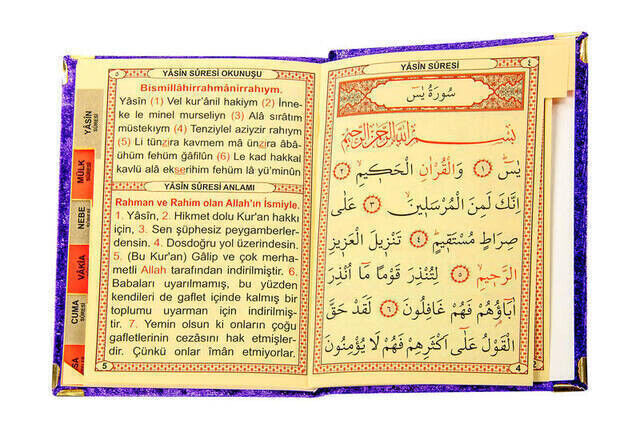 ٥
YÂSİN SÛRESİ OKUNUŞU
Bismillâhirrahmânirrahıym.
Yâsîn (1) Vel kur'ânil hakiym (2) İnne-
ke le minel murseliyn (3) Alâ sırâtım
müstekıym (4) Tenziylel aziyzir rahıym
(5) Li tünzira kavmem mâ ünzira âbâ-
ühüm fehüm gâfilûn (6) Le kad hakkal
kavlü alâ ekserihim fehüm lâ yü'minûn
YÂSİN SÛRESİ ANLAMI
Rahman ve Rahim olan Allah'ın İsmiyle.
1. Yâsîn, 2. Hikmet dolu Kur'an hakkı
için, 3. Sen şüphesiz peygamberler-
densin. 4. Dosdoğru yol üzerindesin.
5. (Bu Kur'an) Gâlip ve çok merha-
metli Allah tarafından indirilmiştir. 6.
Babaları uyarılmamış, bu yüzden
kendileri de gaflet içinde kalmış bir
toplumu uyarman için indirilmiş-
tir. 7. Yemin olsun ki onların çoğu
gafletlerinin cezasını hak etmişler-
dir. Çünkü onlar îmân etmiyorlar.
5
YÂSİN SÛRESİ
MÜLK SÛRESİ
NEBE SÛRESİ
VÂKIA SÛRESİ
CUMA SÛRESİ
YÂSİN SÛRESİ
٤
سُورَةُ يٰسٓ
بِسْمِ اللهِ الرَّحْمٰنِ الرَّحِيمِ
يٰسٓ ﴿١﴾ وَالْقُرْاٰنِ الْحَكِيمِ ﴿٢﴾
اِنَّكَ لَمِنَ الْمُرْسَلِينَ ﴿٣﴾ عَلٰى
صِرَاطٍ مُسْتَقِيمٍ ﴿٤﴾ تَنْزِيلَ الْعَزِيزِ
الرَّحِيمِ ﴿٥﴾ لِتُنْذِرَ قَوْمًا مَٓا اُنْذِرَ
اٰبَٓاؤُ۬هُمْ فَهُمْ غَافِلُونَ ﴿٦﴾ لَقَدْ حَقَّ
الْقَوْلُ عَلٰٓى اَكْثَرِهِمْ فَهُمْ لَا يُؤْمِنُونَ
4